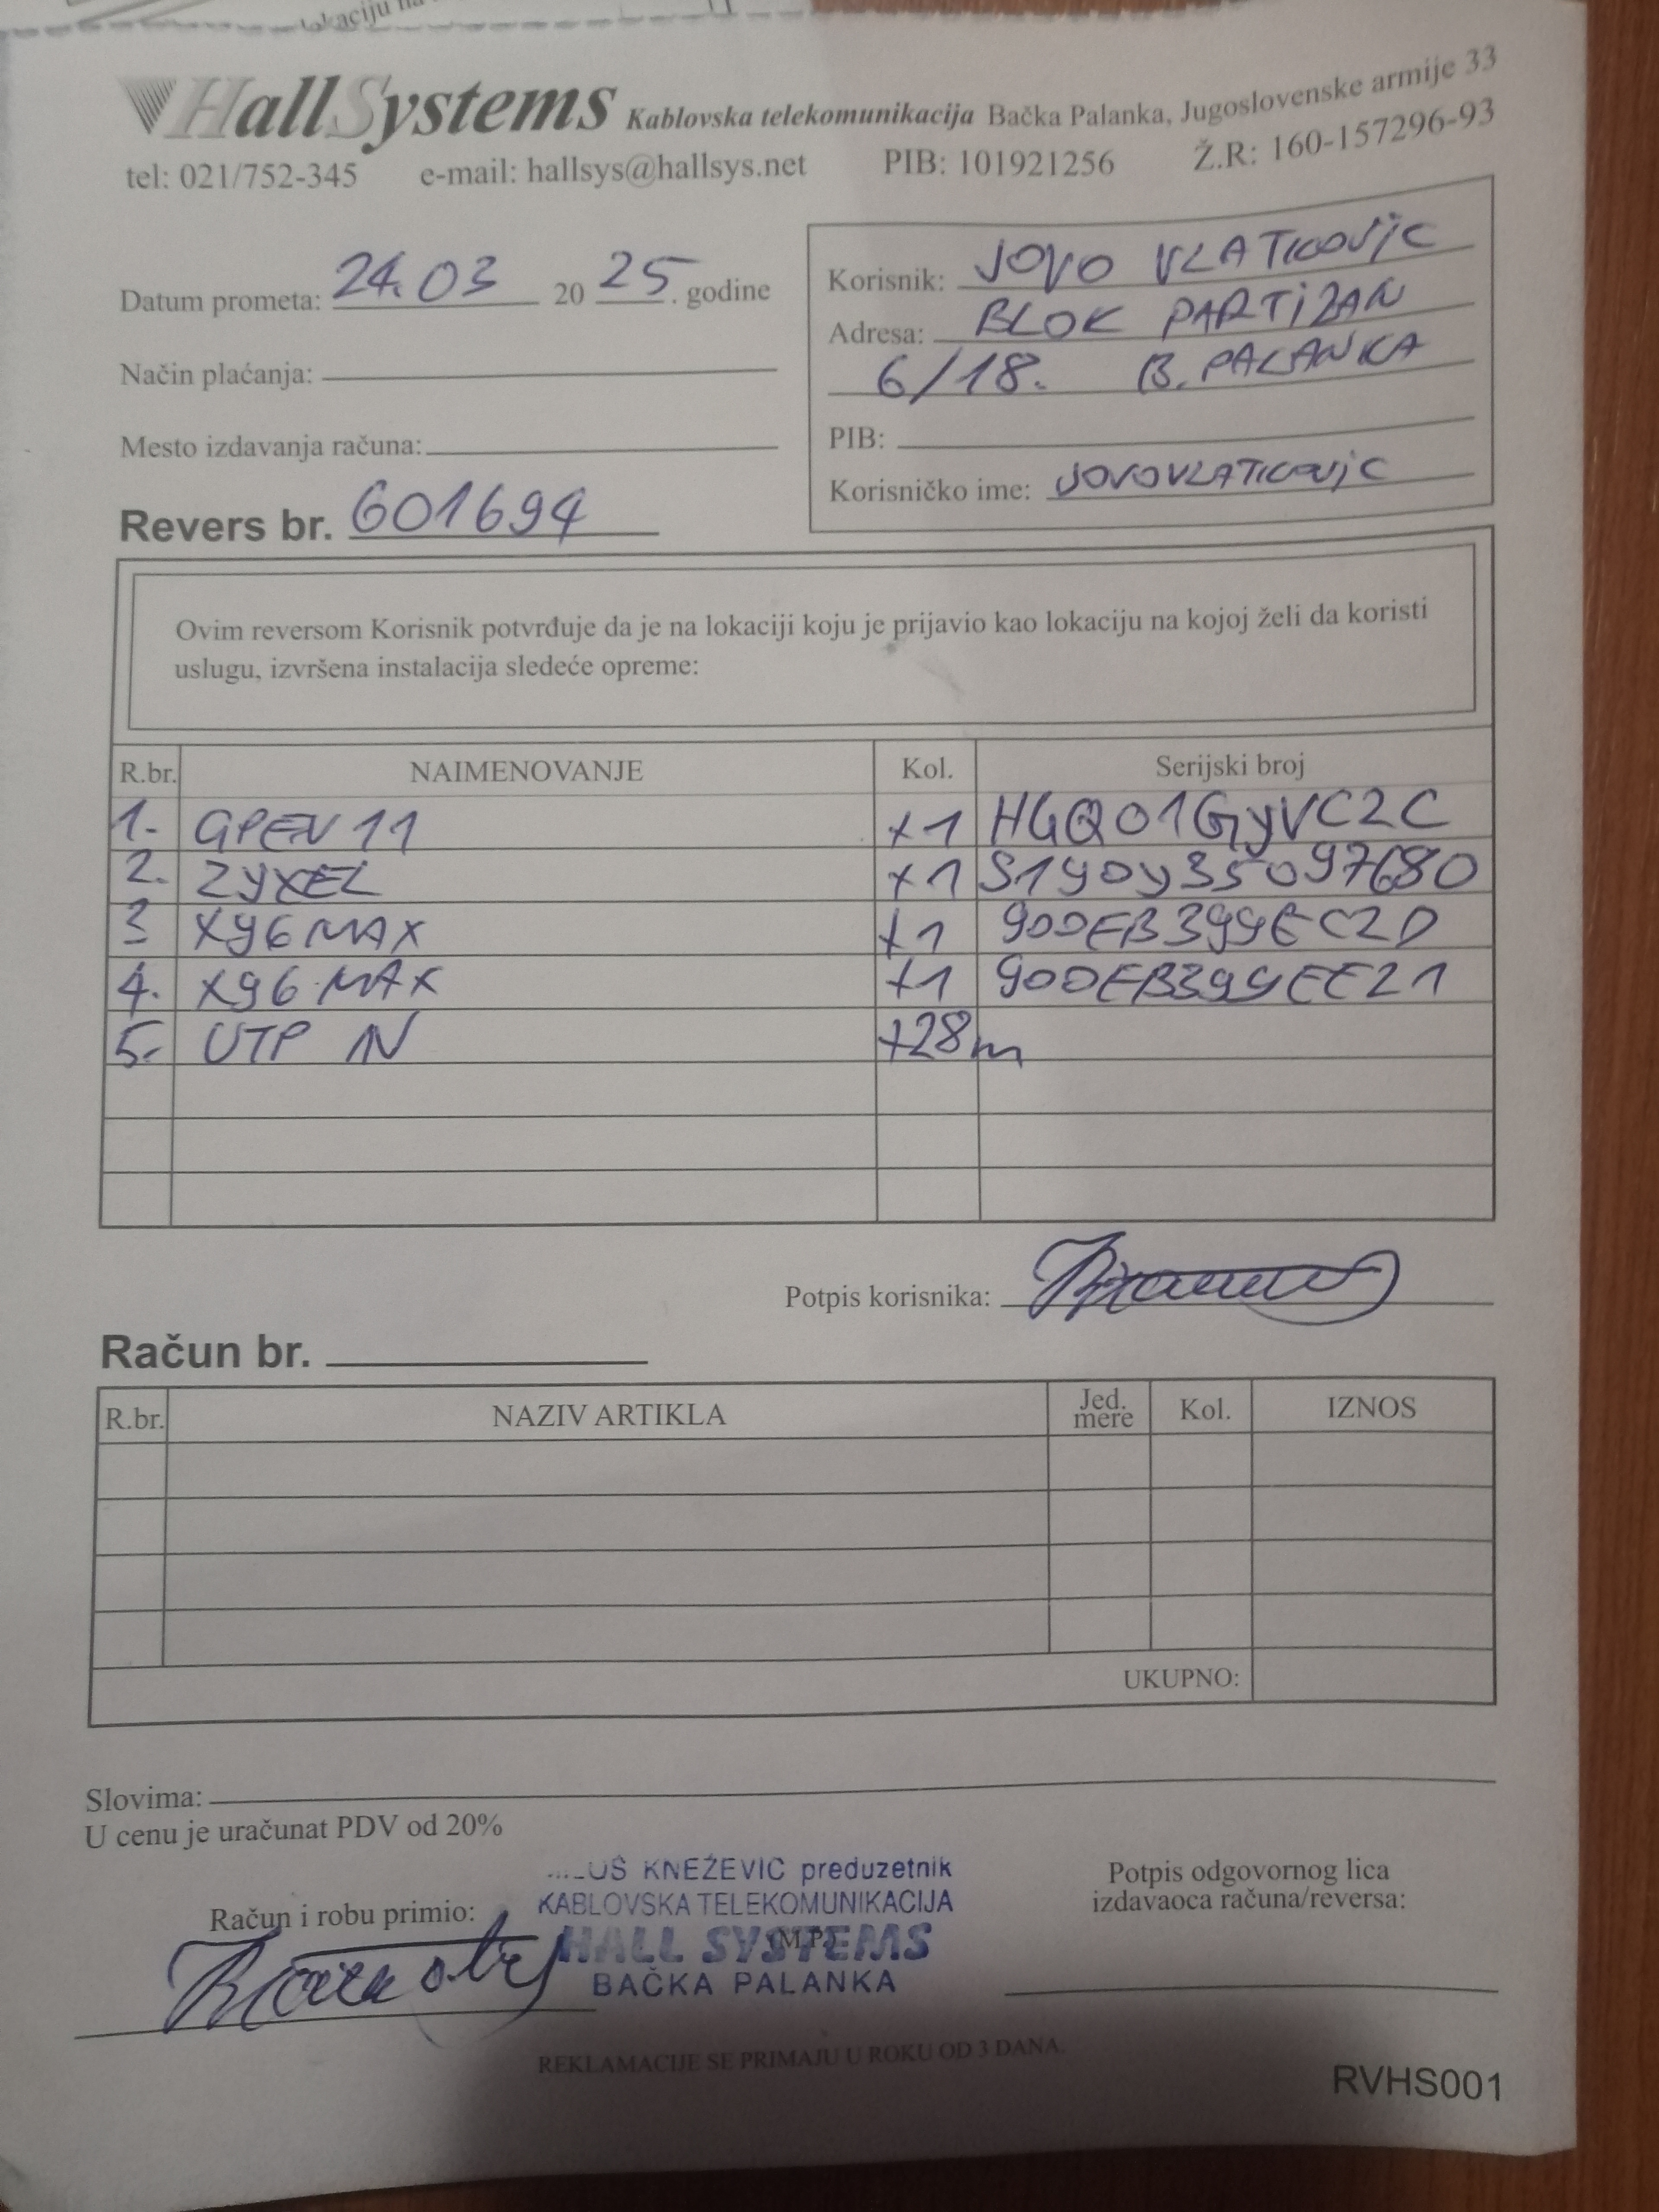 lokaciju na
HallSystems Kablovska telekomunikacija Bačka Palanka, Jugoslovenske armije 33
tel: 021/752-345 e-mail: hallsys@hallsys.net PIB: 101921256 Ž.R: 160-157296-93
Datum prometa: 24.03 20 25. godine
Način plaćanja:
Mesto izdavanja računa:
Revers br. 601694
Korisnik: JOVO VLATKOVIC
Adresa: BLOK PARTIZAN
6/18. B. PALANKA
PIB:
Korisničko ime: JOVOVLATKOVIC
Ovim reversom Korisnik potvrđuje da je na lokaciji koju je prijavio kao lokaciju na kojoj želi da koristi
uslugu, izvršena instalacija sledeće opreme:
R.br. NAIMENOVANJE Kol. Serijski broj
1. GPEN 11 +1
2. ZYXEL +1
3 X96 MAX +1
4. X96 MAX +1 90DEB399EE21
5. UTP N +28m
Potpis korisnika:
Račun br.
R.br. NAZIV ARTIKLA Jed. mere Kol. IZNOS
UKUPNO:
Slovima:
U cenu je uračunat PDV od 20%
Račun i robu primio:
KNEŽEVIĆ preduzetnik
KABLOVSKA TELEKOMUNIKACIJA
HALL SYSTEMS
(M.P.)
BAČKA PALANKA
Potpis odgovornog lica
izdavaoca računa/reversa:
REKLAMACIJE SE PRIMAJU U ROKU OD 3 DANA.
RVHS001